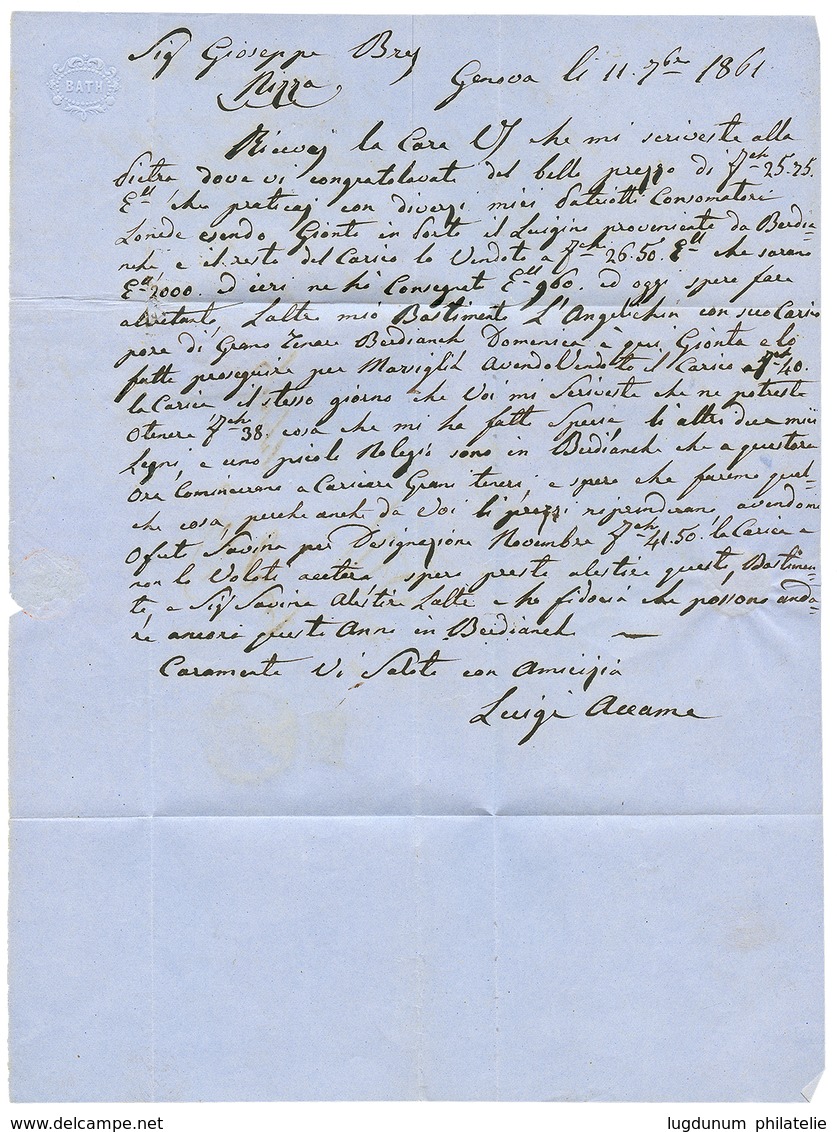 Sigr Gioseppe Brès
Nizza
BATH
Genova li 11. 7bre 1861.
Ricevei la Cara Vs che mi scriveste alla
Pietra dove vi congratolavate del bello prezzo di fchi 25.75.
Ett che praticai con diverzi miei Patriotti Consomatori
Londe esendo Gionto in Porto il Luigino proveniente da Berdia-
nche e il resto del Carico lo Vendoto a fchi 26.50. Ett che sarano
Ett 2000. ed ieri ne hò Consegnat Ett 960. ed oggi spero fare
altretanto, Laltro mio Bastimento L'Angelichin con suo Carico
pore di Grano Tenaro Berdianch Domenica è qui Gionto e lo
fatto proseguire per Marsiglia Avendo Vendoto il Carico a fchi 40.
la Carica il stesso giorno che Voi mi Scriveste che ne potreste
Otenere fchi 38. cosa che mi ha fatto Specia, li altri due miei
Legni, e uno picolo Nolegio sono in Berdianche che a questora
Ora Comincierano a Caricare Grani teneri, e spero che faremo qual-
che cosa, perche anche da Voi li prezzi riprenderano, avendomi
Ofert Savina per Designazione Novembre fchi 41.50. la Carica e
non lo Voluto acetare, spero presto alestire questo Bastimen-
to e Sigr Savina Alestire Laltro e ho fidocia che possono anda-
re ancora questo Anno in Berdianch
Caramente Vi Saloto con Amicizia
Luigi Accame
www.delcampe.net
lugdunum philatelie